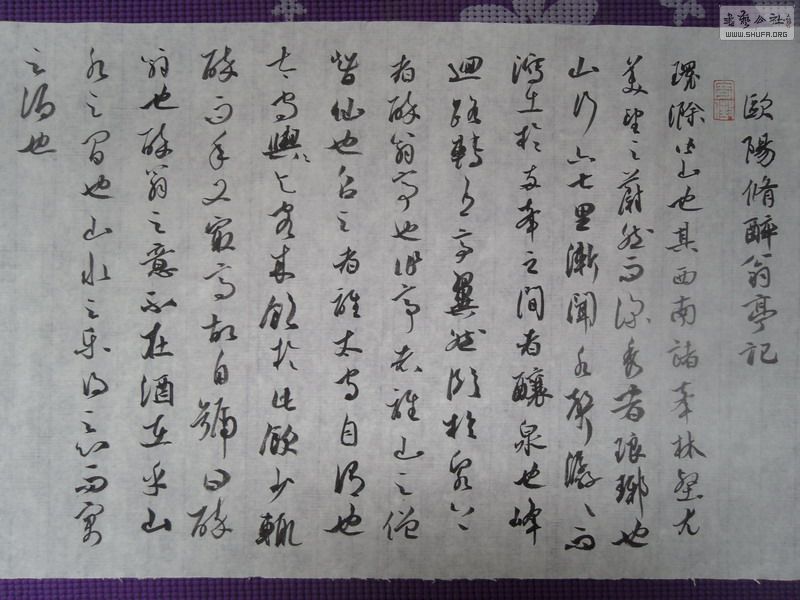 歐陽脩醉翁亭記
環滁皆山也其西南諸峯林壑尤
美望之蔚然而深秀者琅琊也
山行六七里漸聞水聲潺々而
瀉出於兩峯之間者釀泉也峰
迴路轉有亭翼然臨於泉上
者醉翁亭也作亭者誰山之僧
智仙也名之者誰太守自謂也
太守與客來飲於此飲少輒
醉而年又最高故自號曰醉
翁也醉翁之意不在酒在乎山
水之間也山水之樂得之心而寓
之酒也
WWW.SHUFA.ORG